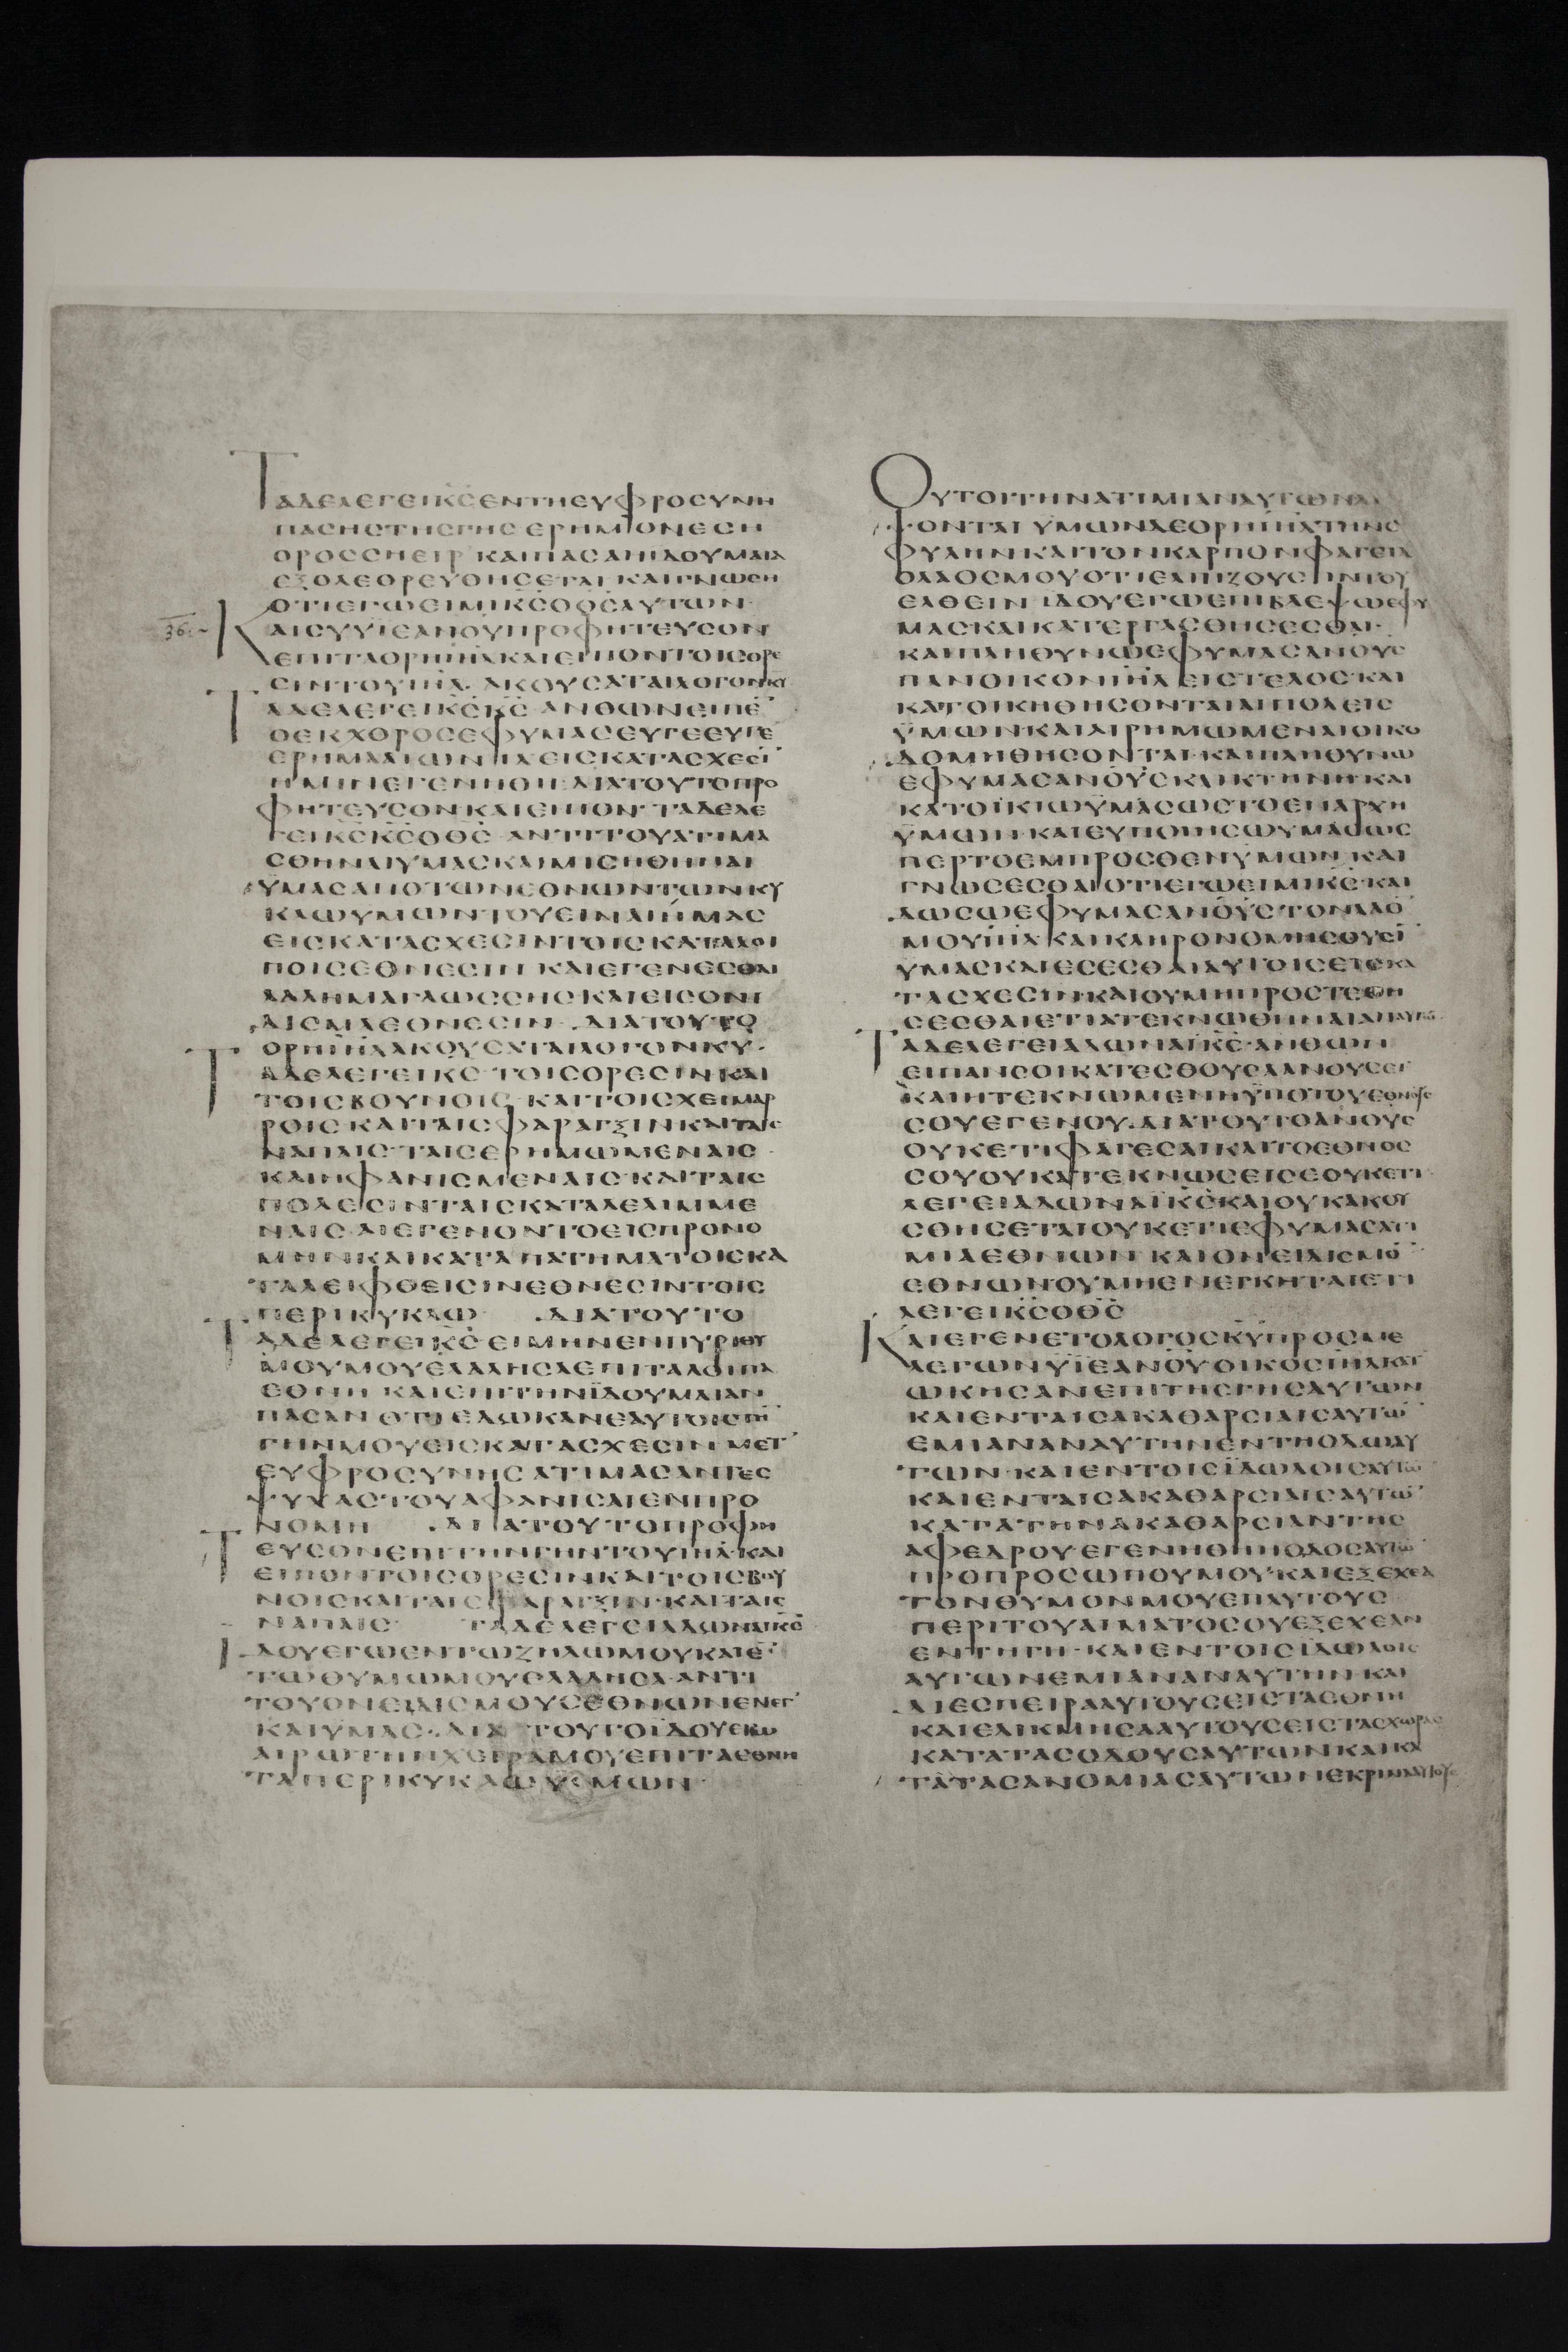 ΤΑΔΕΛΕΓΕΙΚ̅Ϲ̅ΕΝΤΗΕΥΦΡΟϹΥΝΗ
ΠΑϹΗϹΤΗϹΓΗϹΕΡΗΜΟΝΕϹΗ
ΟΡΟϹϹΗΕΙΡ·ΚΑΙΠΑϹΑΗΙΔΟΥΜΑΙΑ
ΕΞΟΛΕΘΡΕΥΘΗϹΕΤΑΙ·ΚΑΙΓΝΩϹΗ
ΟΤΙΕΓΩΕΙΜΙΚ̅Ϲ̅ΟΘ̅Ϲ̅ΑΥΤΩΝ·
36.
ΚΑΙϹΥΥΙΕΑΝΟΥΠΡΟΦΗΤΕΥϹΟΝ
ΕΠΙΤΑΟΡΗΙΗ̅Λ̅ΚΑΙΕΙΠΟΝΤΟΙϹΟΡΕ
ϹΙΝΤΟΥΙΗ̅Λ̅·ΑΚΟΥϹΑΤΑΙΛΟΓΟΝΚ̅Υ̅
ΤΑΔΕΛΕΓΕΙΚ̅Ϲ̅Κ̅Ϲ̅·ΑΝΘΩΝΕΙΠΕ̅
ΟΕΚΧΘΡΟϹΕΦΥΜΑϹΕΥΓΕΕΥΓΕ
ΕΡΗΜΑΑΙΩΝΙΑΕΙϹΚΑΤΑϹΧΕϹΙ̅
ΗΜΙΝΕΓΕΝΗΘΗ·ΔΙΑΤΟΥΤΟΠΡΟ
ΦΗΤΕΥϹΟΝΚΑΙΕΙΠΟΝ·ΤΑΔΕΛΕ
ΓΕΙΚ̅Ϲ̅Κ̅Ϲ̅ΟΘ̅Ϲ̅·ΑΝΤΙΤΟΥΑΤΙΜΑ
ϹΘΗΝΑΙΥΜΑϹΚΑΙΜΙϹΗΘΗΝΑΙ
ΥΜΑϹΑΠΟΤΩΝΕΘΝΩΝΤΩΝΚΥ
ΚΛΩΥΜΩΝΤΟΥΕΙΝΑΙΗΜΑϹ
ΕΙϹΚΑΤΑϹΧΕϹΙΝΤΟΙϹΚΑΤΑΛΟΙ
ΠΟΙϹΕΘΝΕϹΙΝ·ΚΑΙΕΓΕΝΕϹΘΑΙ
ΛΑΛΗΜΑΓΛΩϹϹΗϹΚΑΙΕΙϹΟΝΙ
ΔΙϹΜΑΕΘΝΕϹΙΝ·ΔΙΑΤΟΥΤΟ
ΟΡΗΙΗ̅Λ̅ΑΚΟΥϹΑΤΑΙΛΟΓΟΝΚ̅Υ̅·
ΤΑΔΕΛΕΓΕΙΚ̅Ϲ̅·ΤΟΙϹΟΡΕϹΙΝΚΑΙ
ΤΟΙϹΒΟΥΝΟΙϹ·ΚΑΙΤΟΙϹΧΕΙΜΑΡ
ΡΟΙϹΚΑΙΤΑΙϹΦΑΡΑΓΞΙΝΚΑΙΤΑΙϹ
ΝΑΠΑΙϹ·ΤΑΙϹΕΡΗΜΩΜΕΝΑΙϹ·
ΚΑΙΗΦΑΝΙϹΜΕΝΑΙϹ·ΚΑΙΤΑΙϹ
ΠΟΛΕϹΙΝΤΑΙϹΚΑΤΑΛΕΛΙΜΜΕ
ΝΑΙϹ·ΑΙΕΓΕΝΟΝΤΟΕΙϹΠΡΟΝΟ
ΜΗΝΚΑΙΚΑΤΑΠΑΤΗΜΑΤΟΙϹΚΑ
ΤΑΛΕΙΦΘΕΙϹΙΝΕΘΝΕϹΙΝΤΟΙϹ
ΠΕΡΙΚΥΚΛΩ ·ΔΙΑΤΟΥΤΟ
ΤΑΔΕΛΕΓΕΙΚ̅Ϲ̅ΕΙΜΗΝΕΝΠΥΡΙΘΥ
ΜΟΥΜΟΥΕΛΑΛΗϹΑΕΠΙΤΑΛΟΙΠΑ
ΕΘΝΗ·ΚΑΙΕΠΙΤΗΝΪΔΟΥΜΑΙΑΝ
ΠΑϹΑΝ·ΟΤΙΕΔΩΚΑΝΕΑΥΤΟΙϹΤΗ̅
ΓΗΝΜΟΥΕΙϹΚΑΤΑϹΧΕϹΙΝΜΕΤ
ΕΥΦΡΟϹΥΝΗϹΑΤΙΜΑϹΑΝΤΕϹ
ΨΥΧΑϹΤΟΥΑΦΑΝΙϹΑΙΕΝΠΡΟ
ΝΟΜΗ ·ΔΙΑΤΟΥΤΟΠΡΟΦΗ
ΤΕΥϹΟΝΕΠΙΤΗΝΓΗΝΤΟΥΙΗ̅Λ̅·ΚΑΙ
ΕΙΠΟΝΤΟΙϹΟΡΕϹΙΝΚΑΙΤΟΙϹΒΟΥ
ΝΟΙϹΚΑΙΤΑΙϹΦΑΡΑΓΞΙΝ·ΚΑΙΤΑΙϹ
ΝΑΠΑΙϹ ΤΑΔΕΛΕΓΕΙΑΔΩΝΑΪΚ̅Ϲ̅
ΙΔΟΥΕΓΩΕΝΤΩΖΗΛΩΜΟΥΚΑΙΕ̅
ΤΩΘΥΜΩΜΟΥΕΛΑΛΗϹΑ·ΑΝΤΙ
ΤΟΥΟΝΕΙΔΙϹΜΟΥϹΕΘΝΩΝΕΝΕΓ
ΚΑΙΥΜΑϹ·ΔΙΑΤΟΥΤΟΪΔΟΥΕΓΩ
ΑΙΡΩΤΗΝΧΕΙΡΑΜΟΥΕΠΙΤΑΕΘΝΗ
ΤΑΠΕΡΙΚΥΚΛΩΥΜΩΝ·
ΟΥΤΟΙΤΗΝΑΤΙΜΙΑΝΑΥΤΩΝΛΗ
ΨΟΝΤΑΙ·ΥΜΩΝΔΕΟΡΗΙΗ̅Λ̅ΤΗΝϹ
ΦΥΛΗΝΚΑΙΤΟΝΚΑΡΠΟΝΦΑΓΕΤΑΙ
ΟΛΑΟϹΜΟΥΟΤΙΕΛΠΙΖΟΥϹΙΝΤΟΥ
ΕΛΘΕΙΝ·ΙΔΟΥΕΓΩΕΠΙΒΛΕΨΩΕΦΥ
ΜΑϹΚΑΙΚΑΤΕΡΓΑϹΘΗϹΕϹΘΑΙ·
ΚΑΙΠΛΗΘΥΝΩΕΦΥΜΑϹΑΝ̅Ο̅Υ̅Ϲ̅
ΠΑΝΟΙΚΟΝΙΗ̅Λ̅ΕΙϹΤΕΛΟϹ·ΚΑΙ
ΚΑΤΟΙΚΗΘΗϹΟΝΤΑΙΑΙΠΟΛΕΙϹ
ΫΜΩΝΚΑΙΑΙΡΗΜΩΜΕΝΑΙΟΙΚΟ
ΔΟΜΗΘΗϹΟΝΤΑΙ·ΚΑΙΠΛΗΘΥΝΩ
ΕΦΥΜΑϹΑΝ̅Ο̅Υ̅Ϲ̅ΚΑΙΚΤΗΝΗ·ΚΑΙ
ΚΑΤΟΙΚΙΩΫΜΑϹΩϹΤΟΕΝΑΡΧΗ
ΫΜΩΝ·ΚΑΙΕΥΠΟΙΗϹΩΥΜΑϹΩϹ
ΠΕΡΤΟΕΜΠΡΟϹΘΕΝΥΜΩΝ·ΚΑΙ
ΓΝΩϹΕϹΘΑΙΟΤΙΕΓΩΕΙΜΙΚ̅Ϲ̅·ΚΑΙ
ΔΩϹΩΕΦΥΜΑϹΑΝ̅Ο̅Υ̅Ϲ̅ΤΟΝΛΑΟ̅
ΜΟΥΙΗ̅Λ̅·ΚΑΙΚΛΗΡΟΝΟΜΗϹΟΥϹΙ̅
ΥΜΑϹΚΑΙΕϹΕϹΘΑΙΑΥΤΟΙϹΕΙϹΚΑ
ΤΑϹΧΕϹΙΝ·ΚΑΙΟΥΜΗΠΡΟϹΤΕΘΗ
ϹΕϹΘΑΙΕΤΙΑΤΕΚΝΩΘΗΝΑΙΑΠΑΥΤΩ̅
ΤΑΔΕΛΕΓΕΙΑΔΩΝΑΪΚ̅Ϲ̅·ΑΝΘΩΝ
ΕΙΠΑΝϹΟΙΚΑΤΕϹΘΟΥϹΑΑΝΟΥϹΕΙ
ΚΑΙΗΤΕΚΝΩΜΕΝΗΫΠΟΤΟΥΕΘΝΟΥϹ
ϹΟΥΕΓΕΝΟΥ·ΔΙΑΤΟΥΤΟΑΝ̅Ο̅Υ̅Ϲ̅
ΟΥΚΕΤΙΦΑΓΕϹΑΙΚΑΙΤΟΕΘΝΟϹ
ϹΟΥΟΥΚΑΤΕΚΝΩϹΕΙϹΕΟΥΚΕΤΙ·
ΛΕΓΕΙΑΔΩΝΑΪΚ̅Ϲ̅ΚΑΙΟΥΚΑΚΟΥ
ϹΘΗϹΕΤΑΙΟΥΚΕΤΙΕΦΥΜΑϹΑΤΙ
ΜΙΑΕΘΝΩΝ·ΚΑΙΟΝΕΙΔΙϹΜΟ̅
ΕΘΝΩΝΟΥΜΗΕΝΕΓΚΗΤΑΙΕΤΙ
ΛΕΓΕΙΚ̅Ϲ̅ΟΘ̅Ϲ̅
ΚΑΙΕΓΕΝΕΤΟΛΟΓΟϹΚ̅Υ̅ΠΡΟϹΜΕ
ΛΕΓΩΝΥΪΕΑΝ̅Ο̅Υ̅ΟΙΚΟϹΙΗ̅Λ̅ΚΑΤ
ΩΚΗϹΑΝΕΠΙΤΗϹΓΗϹΑΥΤΩΝ
ΚΑΙΕΝΤΑΙϹΑΚΑΘΑΡϹΙΑΙϹΑΥΤΩ̅
ΕΜΙΑΝΑΝΑΥΤΗΝΕΝΤΗΟΔΩΑΥ
ΤΩΝ·ΚΑΙΕΝΤΟΙϹΪΔΩΛΟΙϹΑΥΤΩ̅
ΚΑΙΕΝΤΑΙϹΑΚΑΘΑΡϹΙΑΙϹΑΥΤΩ̅
ΚΑΤΑΤΗΝΑΚΑΘΑΡϹΙΑΝΤΗϹ
ΑΦΕΔΡΟΥ·ΕΓΕΝΗΘΗΗΟΔΟϹΑΥΤΩ̅
ΠΡΟΠΡΟϹΩΠΟΥΜΟΥ·ΚΑΙΕΞΕΧΕΑ
ΤΟΝΘΥΜΟΝΜΟΥΕΠΑΥΤΟΥϹ
ΠΕΡΙΤΟΥΑΙΜΑΤΟϹΟΥΕΞΕΧΕΑΝ
ΕΝΤΗΓΗ·ΚΑΙΕΝΤΟΙϹΪΔΩΛΟΙϹ
ΑΥΤΩΝΕΜΙΑΝΑΝΑΥΤΗΝ·ΚΑΙ
ΔΙΕϹΠΕΙΡΑΑΥΤΟΥϹΕΙϹΤΑΕΘΝΗ
ΚΑΙΕΛΙΚΜΗϹΑΑΥΤΟΥϹΕΙϹΤΑϹΧΩΡΑϹ
ΚΑΤΑΤΑϹΟΔΟΥϹΑΥΤΩΝΚΑΙΚΑ
ΤΑΤΑϹΑΝΟΜΙΑϹΑΥΤΩΝΕΚΡΙΝΑΑΥΤΟΥϹ